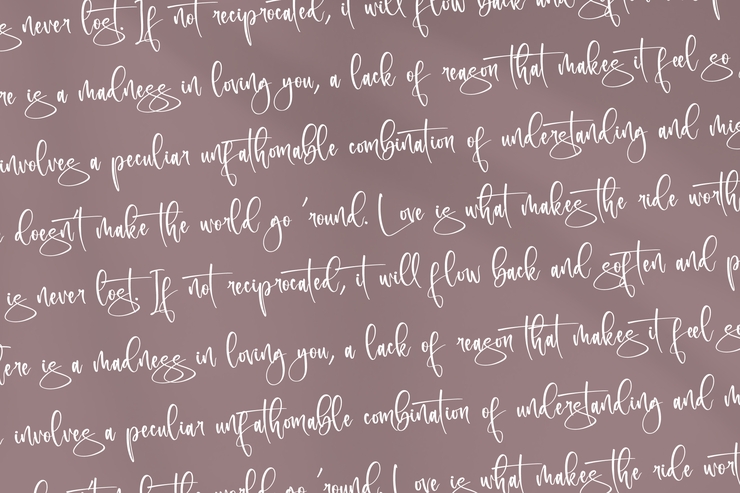 s never lost. If not reciprocated, it will flow back and soften
re is a madness in loving you, a lack of reason that makes it feel so
involves a peculiar unfathomable combination of understanding and mis
doesn't make the world go 'round. Love is what makes the ride worth
is never lost. If not reciprocated, it will flow back and soften and p
ere is a madness in loving you, a lack of reason that makes it feel so
involves a peculiar unfathomable combination of understanding and m
make the world go 'round. Love is what makes the ride wort